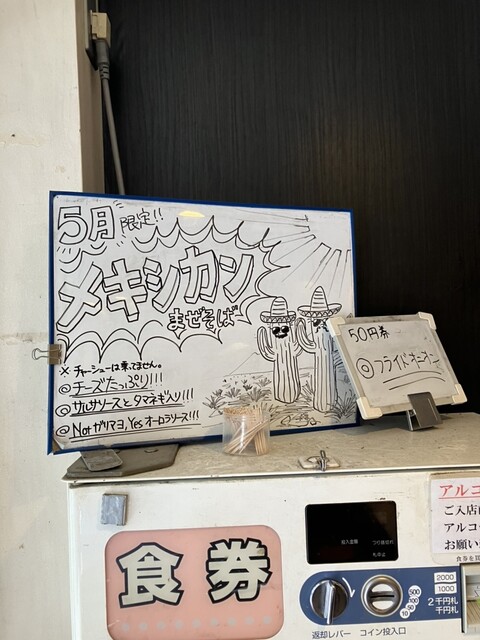 5月限定!!
メキシカン
まぜそば
× チャーシューは乗ってません。
◎ チーズたっぷり!!!
◎ サルサソースとタマネギ入り!!!
◎ Not ガリマヨ, Yes オーロラソース!!!
50円券
◎ フライドオニオン
食券
返却レバー
コイン投入口
500
100
50
10
2000
1000
2千円札
千円札
アルコ
ご入店
アルコー
お願い